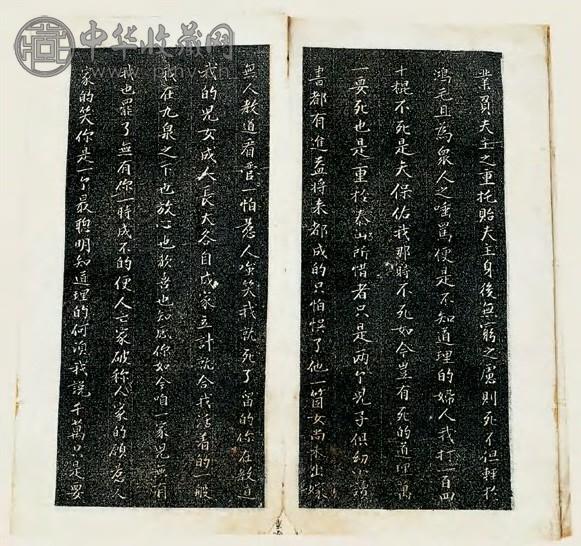 業負夫主之重托貽夫主身後無窮之慮則死不但輕於
鴻毛且為眾人之唾罵便是不知道理的婦人我打一百四
十棍不死是天保佑我那時不死如今豈有死的道理萬
一要死也是重於泰山所惜者只是兩个兒子俱幼讀
書都有進益將來都成的只怕悮了他一箇女尚未出嫁
無人教道看管一怕惹人嗤笑我就死了留的你在教道
我的兒女成人長大各自成家立計就合我活着的一般
我在九泉之下也放心也歡喜也知感你如今咱一家兒無有
我也罷了無有你一時成不的便人亡家破稱人家的願惹人
家的笑你是一个最聰明知道理的何須我說千萬只是要
中华收藏网